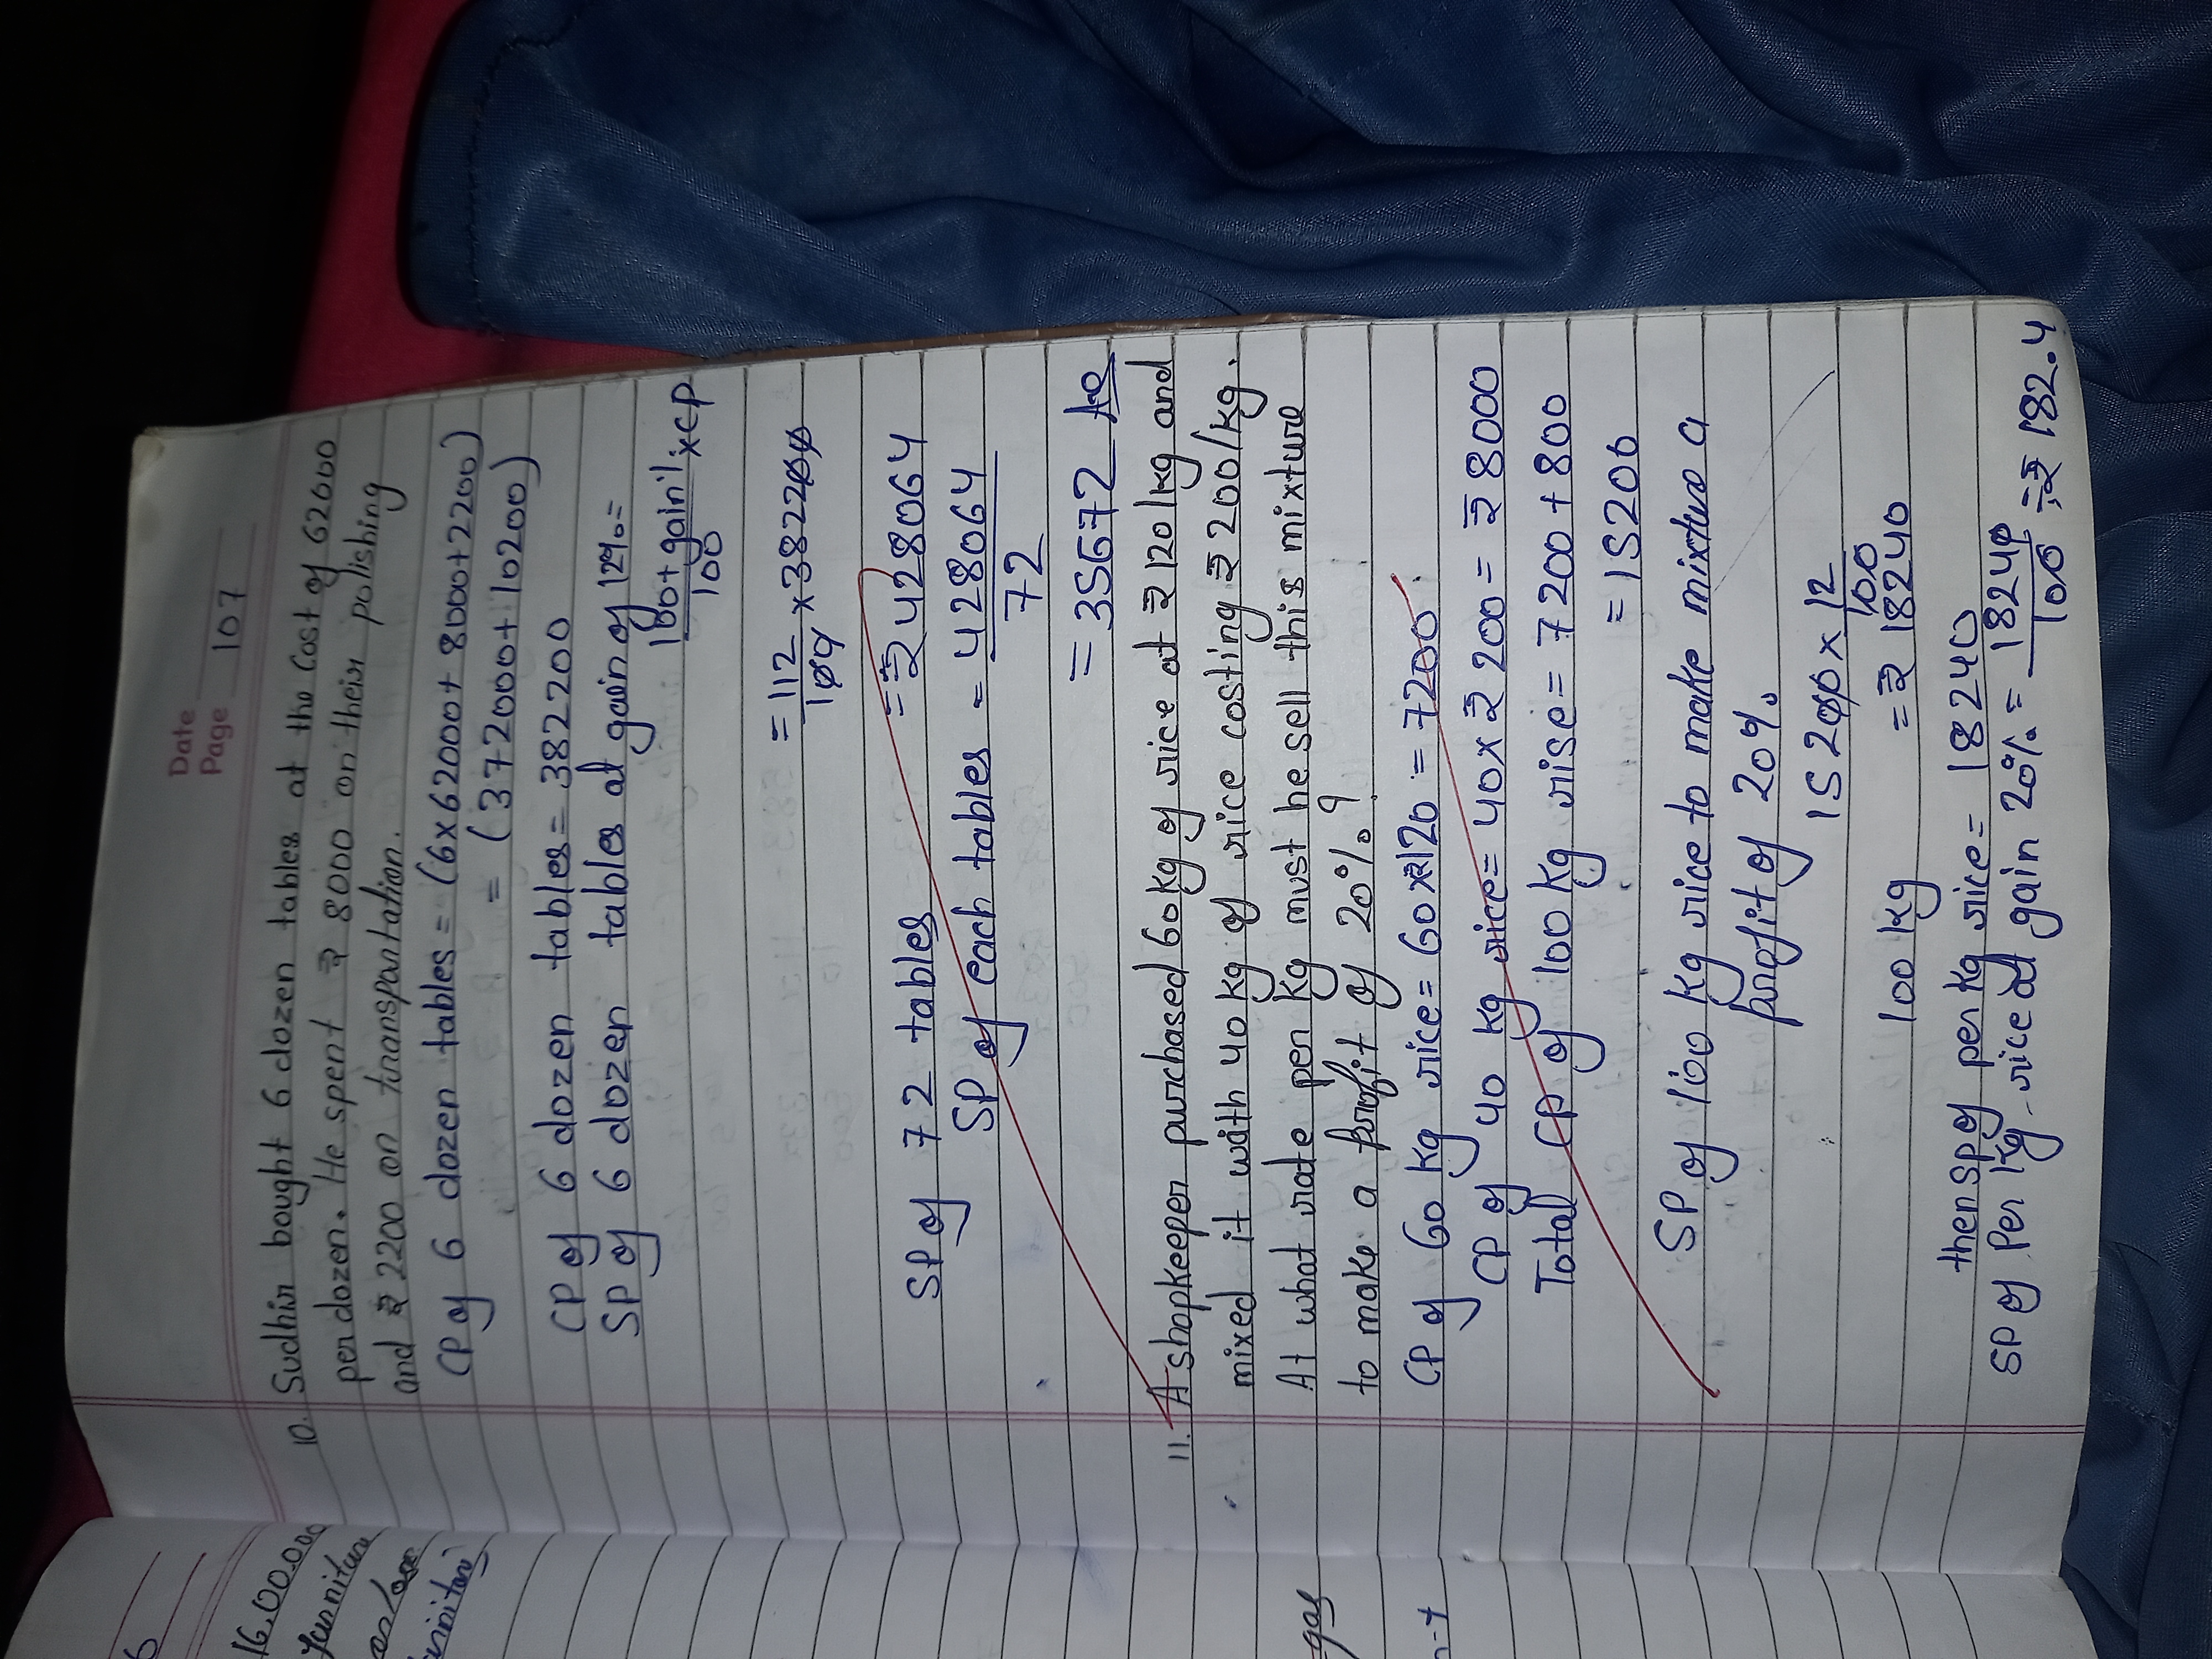 Date
Page 107
10. Sudhir bought 6 dozen tables at the cost of 62000
per dozen. He spent ₹ 8000 on their polishing
and ₹ 2200 on transportation.
CP of 6 dozen tables = (6×62000+8000+2200)
= (372000+10200)
CP of 6 dozen tables = 382200
SP of 6 dozen tables at gain of 12%=
100+gain% ×CP
100
= 112 ×382200
100
= ₹ 428064
SP of 72 tables
SP of each tables = 428064
72
= 35672
11. A shopkeeper purchased 60kg of rice at ₹120/kg and
mixed it with 40 kg of rice costing ₹200/kg.
At what rate per kg must he sell this mixture
to make a profit of 20%?
CP of 60 kg rice = 60×₹120 = 7200
CP of 40 kg rice = 40×₹200 = ₹8000
Total CP of 100 kg rise = 7200+800
= 15200
SP of 100 kg rice to make mixture a
profit of 20%
15200 × 12
100
100 kg = ₹18240
then SP of per kg rice = 18240
SP of Per kg rice at gain 20% = 18240 = ₹182.4
100
16,00,000
furniture
gas